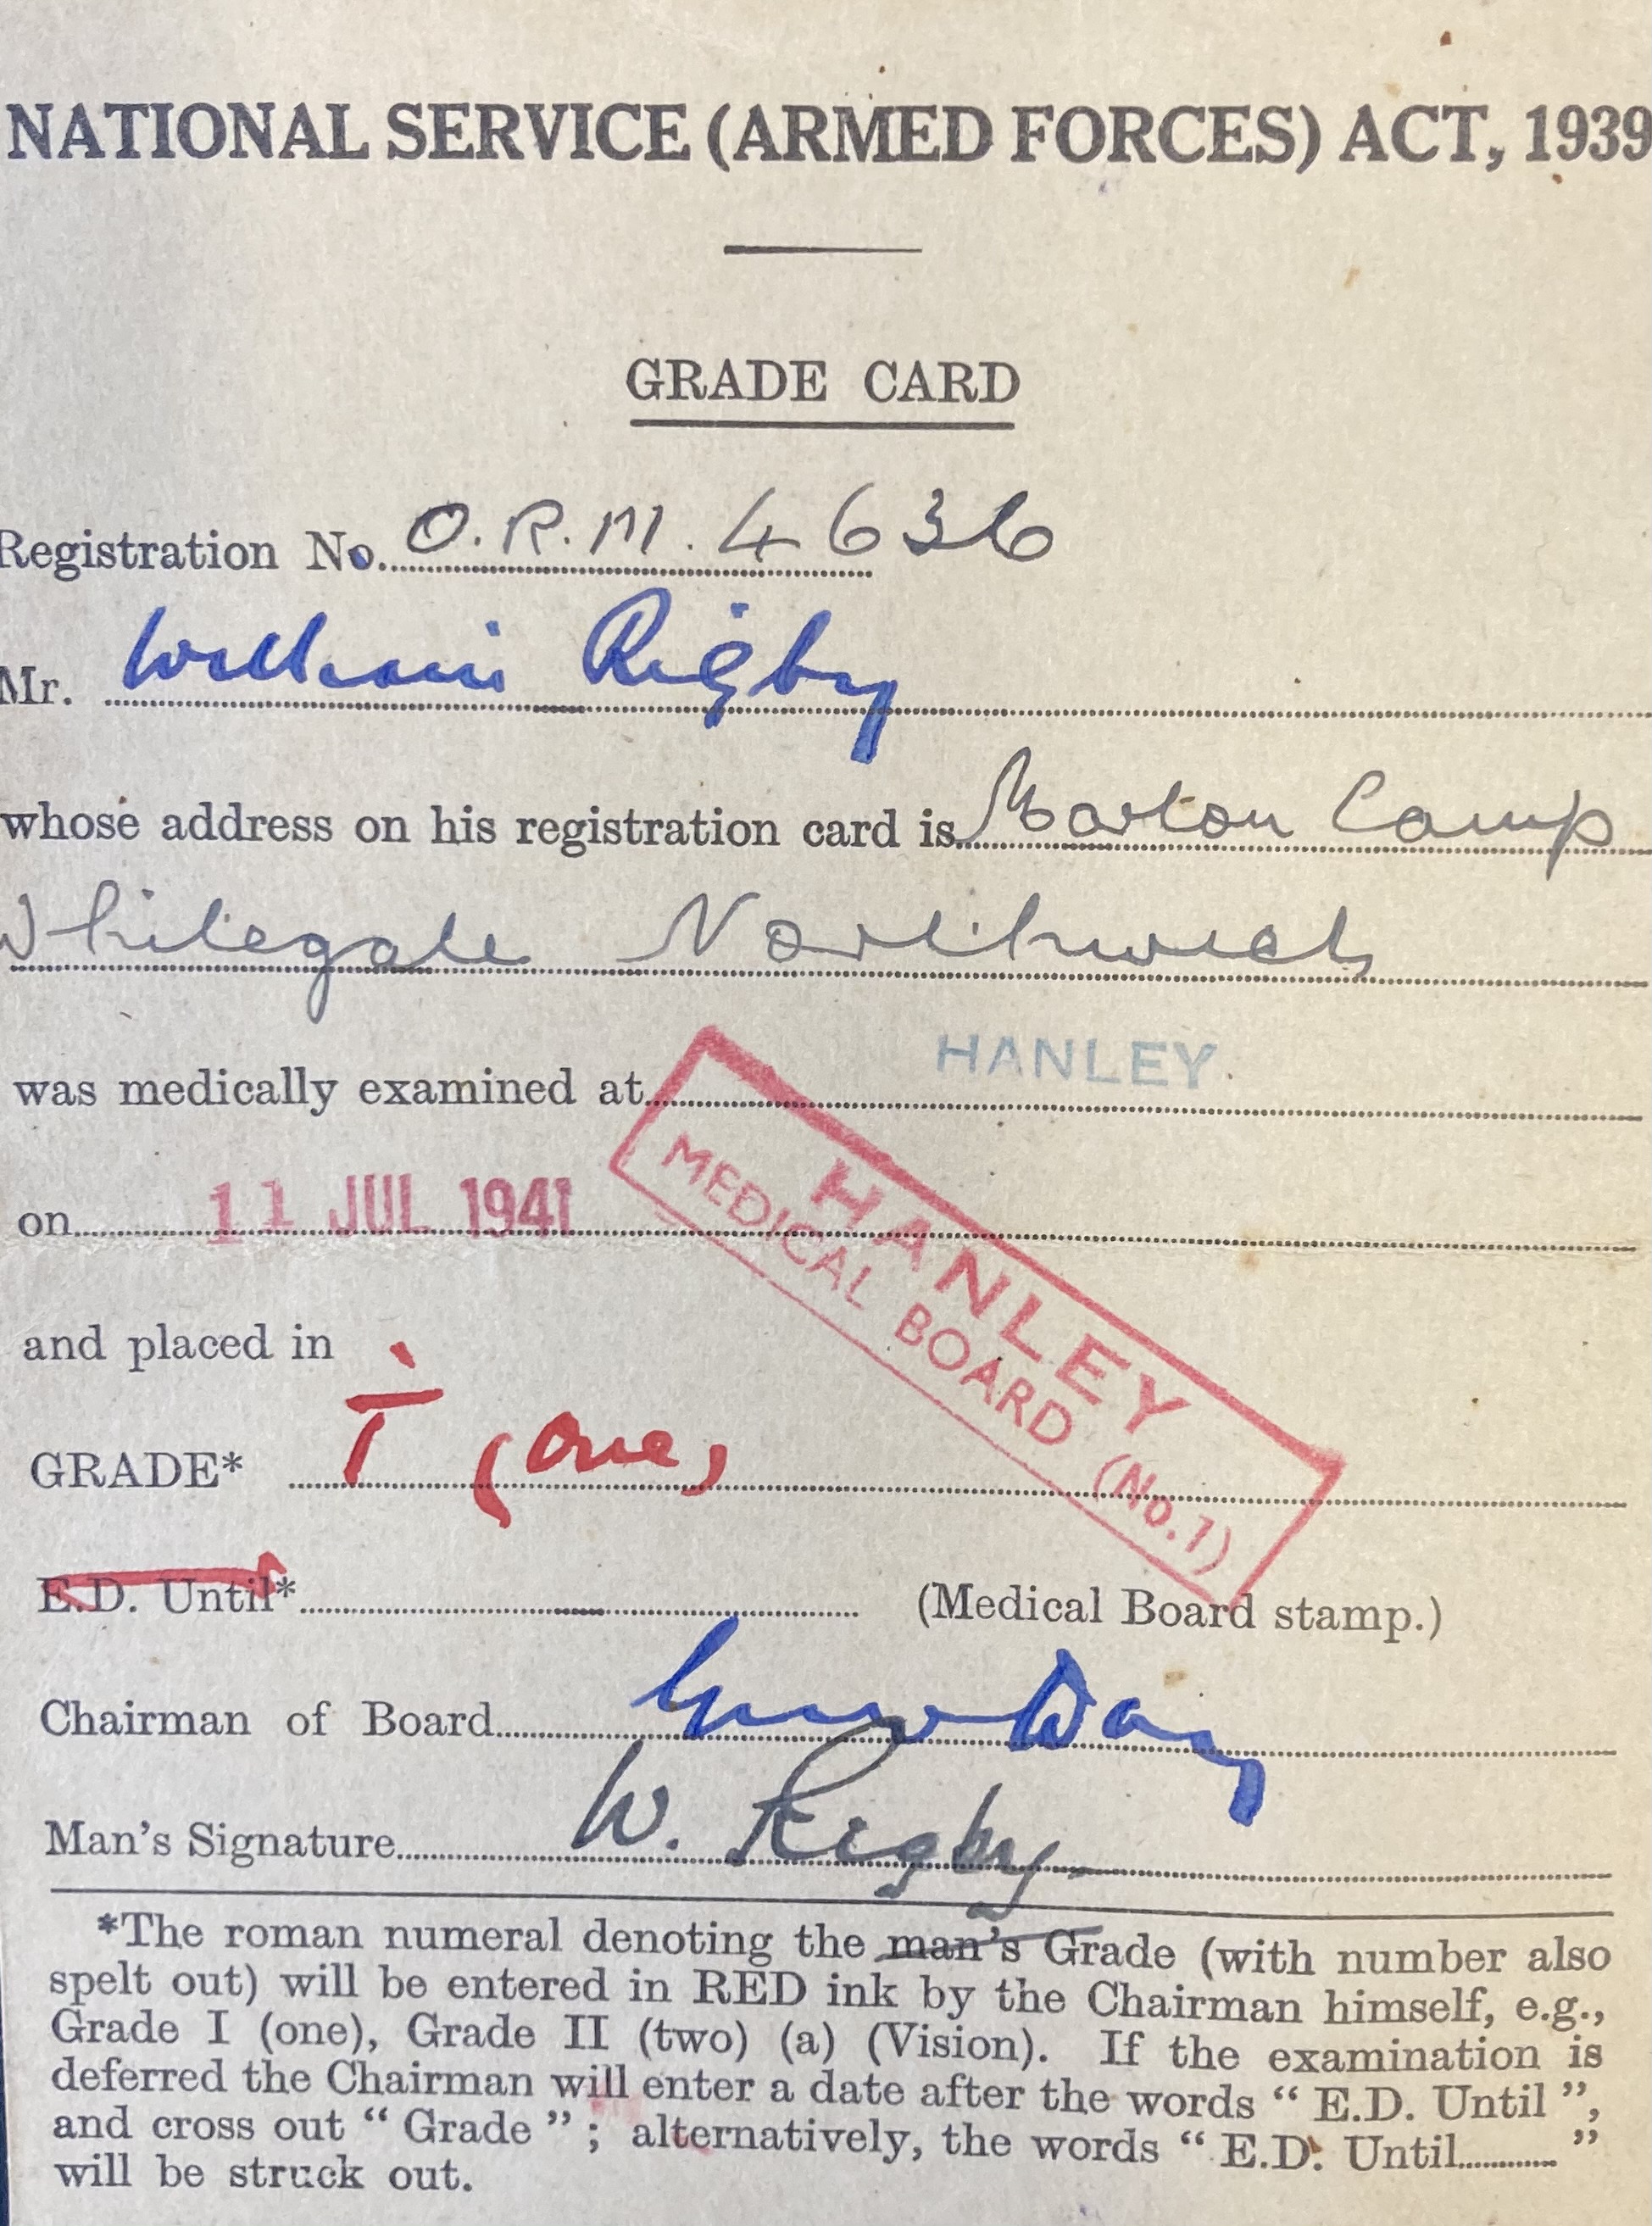 NATIONAL SERVICE (ARMED FORCES) ACT, 1939
GRADE CARD
Registration No. O.R.M. 4636
Mr. William Rigby
whose address on his registration card is Marton Camp
Whitegate Northwich
was medically examined at HANLEY.
on 11 JUL 1941
HANLEY
MEDICAL BOARD (No.1)
and placed in
GRADE* I (One)
E.D. Until*
(Medical Board stamp.)
Chairman of Board Day
Man's Signature W. Rigby
*The roman numeral denoting the man's Grade (with number also
spelt out) will be entered in RED ink by the Chairman himself, e.g.,
Grade I (one), Grade II (two) (a) (Vision). If the examination is
deferred the Chairman will enter a date after the words " E.D. Until ",
and cross out " Grade " ; alternatively, the words " E.D. Until............ "
will be struck out.